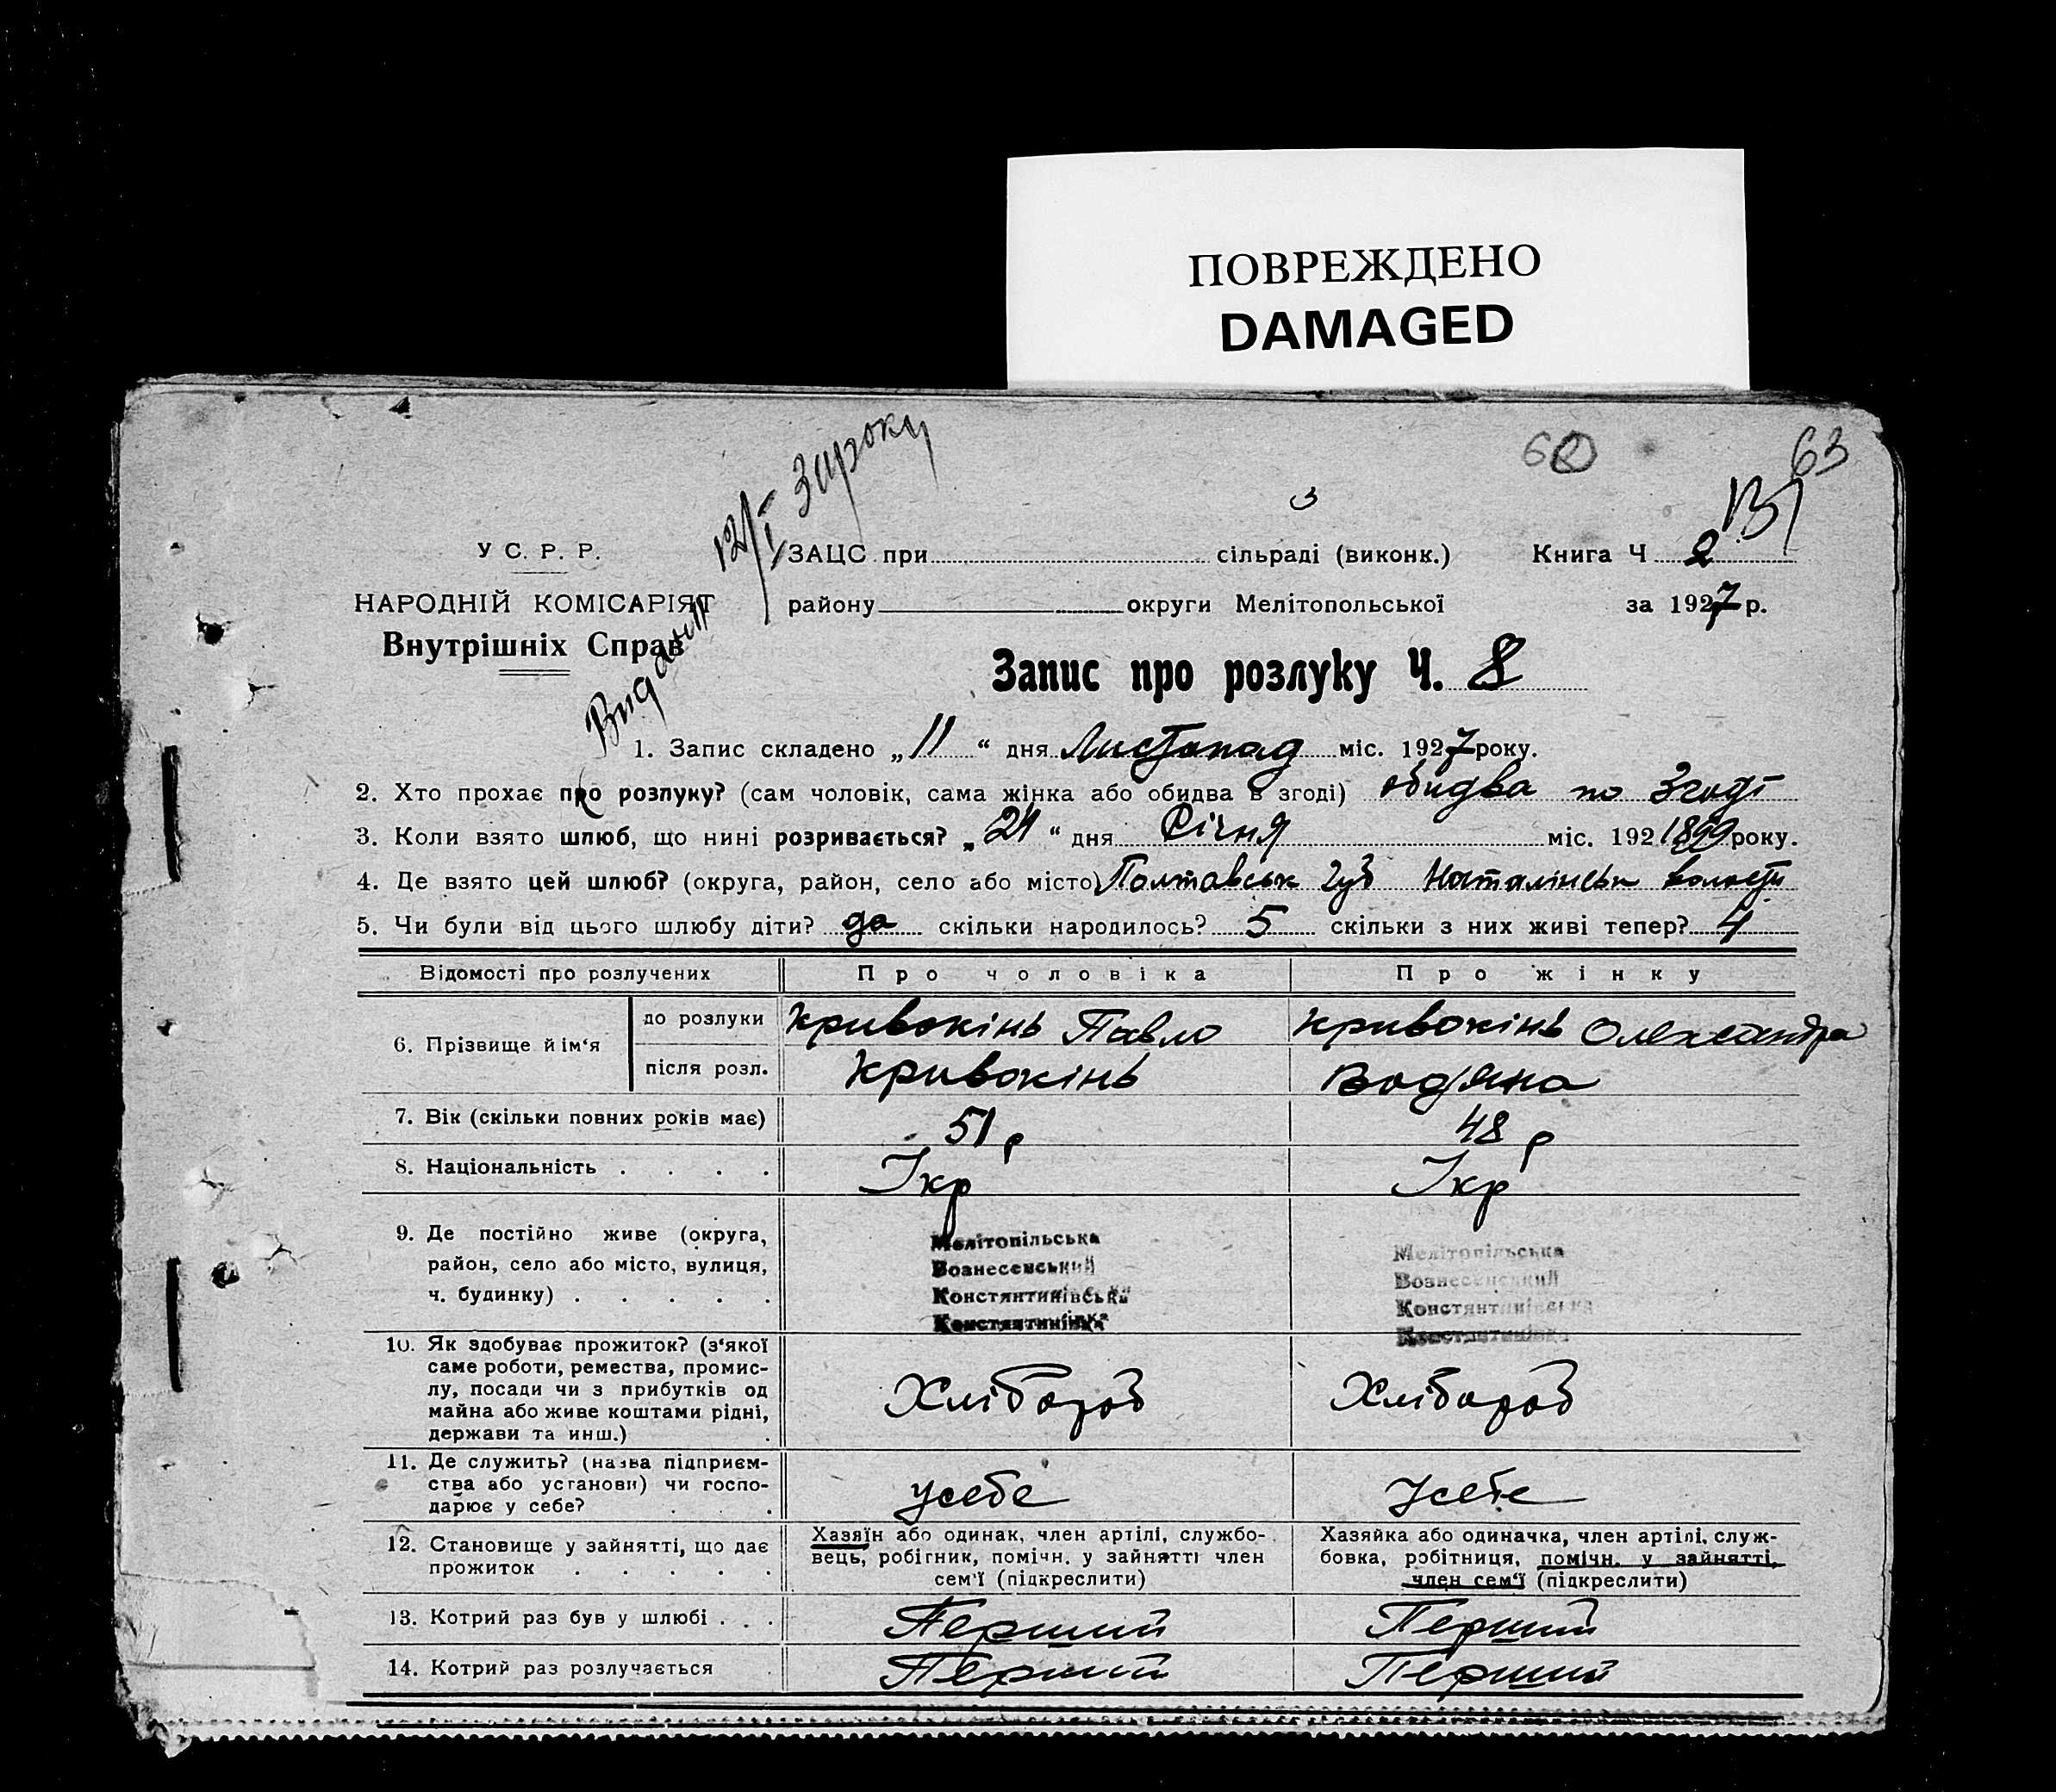 ПОВРЕЖДЕНО
DAMAGED
63
3
12/I
У С. Р. Р.
ЗАЦС при сільраді (виконк.) Книга Ч 2
НАРОДНІЙ КОМІСАРІЯТ
району округи Мелітопольської за 1927 р.
Внутрішніх Справ
Видании
Запис про розлуку Ч. 8
1. Запис складено „11“ дня Листопад міс. 1927 року.
2. Хто прохає про розлуку? (сам чоловік, сама жінка або обидва в згоді) обидва по Згоді
3. Коли взято шлюб, що нині розривається? „24“ дня Січня міс. 192 1899 року.
4. Де взято цей шлюб? (округа, район, село або місто) Полтавськ губ Наталінськ волости
5. Чи були від цього шлюбу діти? да скільки народилось? 5 скільки з них живі тепер? 4
Відомості про розлучених Про чоловіка Про жінку
6. Прізвище й ім‘я до розлуки Кривокінь Павло Кривокінь Олександра
після розл. Кривокінь Водяна
7. Вік (скільки повних років має) 51 р 48 р
8. Національність . . . . Укр Укр
9. Де постійно живе (округа, Мелітопільська Мелітопільська
район, село або місто, вулиця, Вознесенський Вознесенский
ч. будинку) . . . . . Констянтинівська Констянтинівська
Констянтинівка Констянтинівка
10. Як здобуває прожиток? (з‘якої
саме роботи, ремества, промис-
лу, посади чи з прибутків од Хлібороб Хлібороб
майна або живе коштами рідні,
держави та инш.) .
11. Де служить? (назва підприєм-
ства або установи) чи госпо- усебе Усебе
дарює у себе? . . .
12. Становище у зайнятті, що дає
прожиток . . . . .
Хазяїн або одинак, член артілі, службо-
вець, робітник, помічн. у зайнятті член
сем‘ї (підкреслити)
Хазяйка або одиначка, член артілі, служ-
бовка, робітниця, помічн. у зайнятті,
член сем‘ї (підкреслити)
13. Котрий раз був у шлюбі . . . Перший Перший
14. Котрий раз розлучається Перший Перший